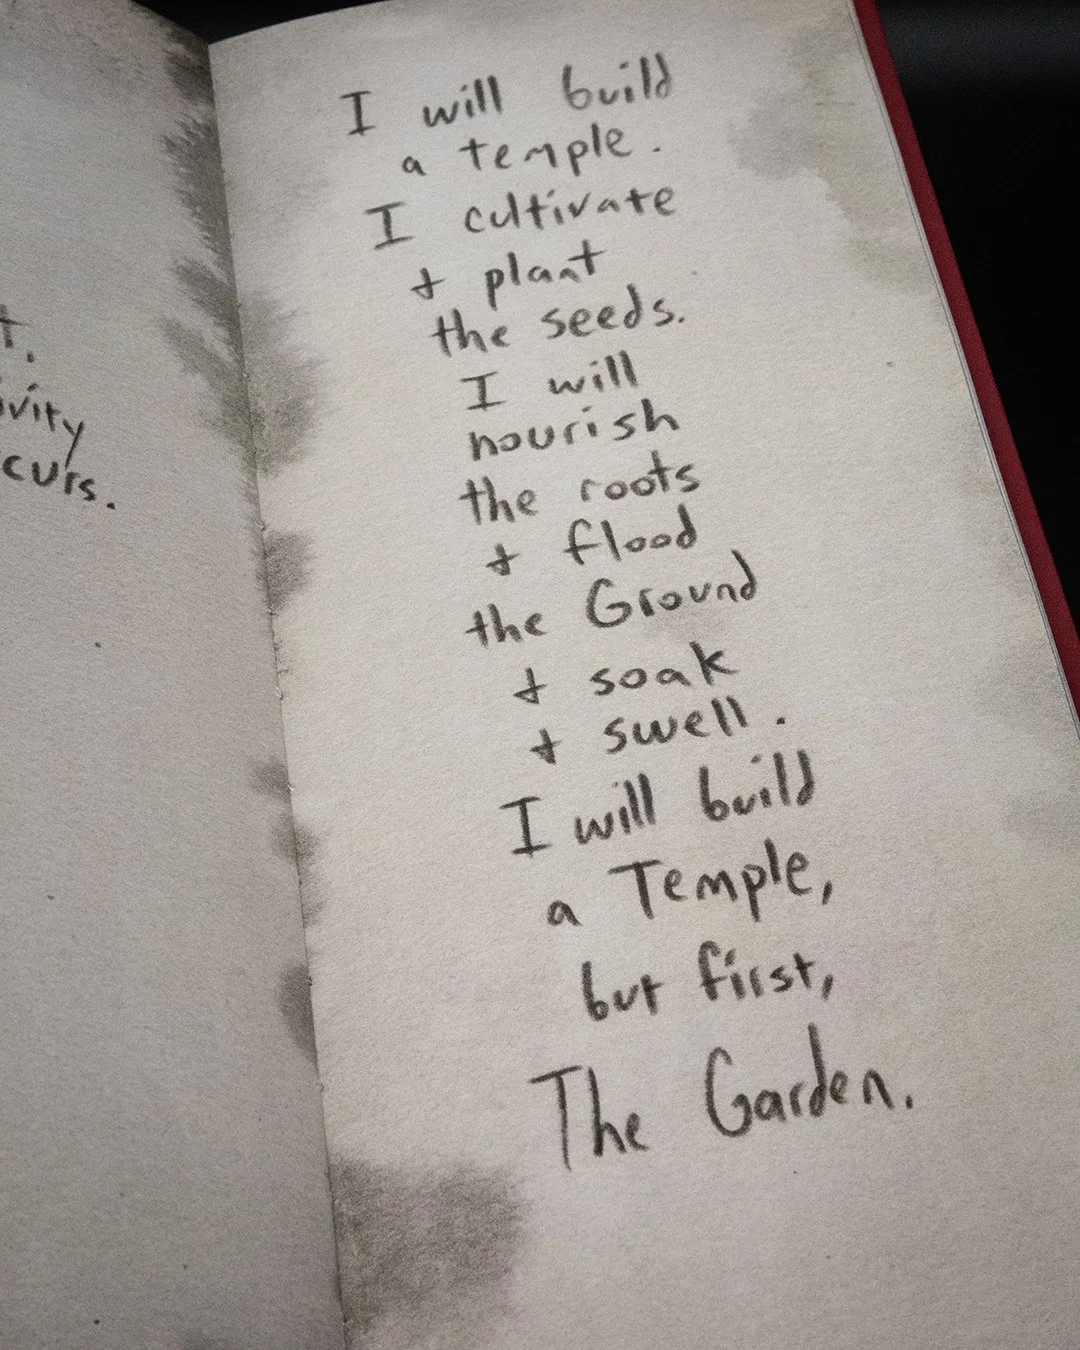 I will build
a temple.
I cultivate
& plant
the seeds.
I will
nourish
the roots
& flood
the Ground
& soak
& swell.
I will build
a Temple,
but first,
The Garden.